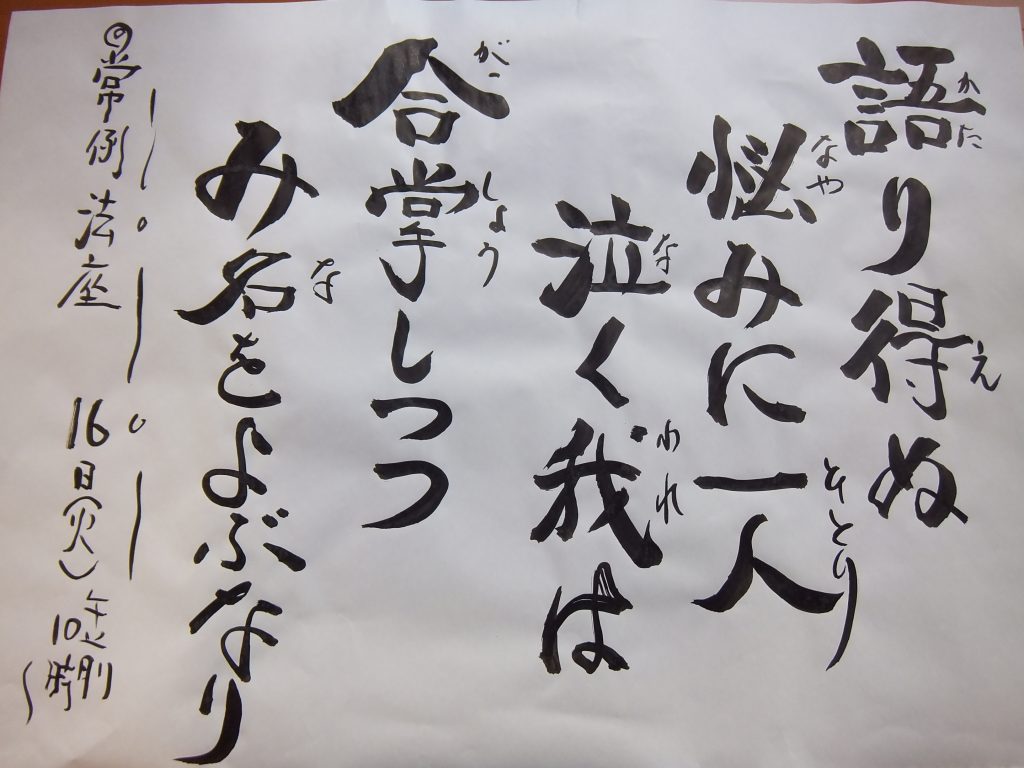 語り得ぬ
かた
え
悩みに一人
なや
ひとり
泣く我は
な
われ
合掌しつつ
がっ
しょう
み名をよぶなり
な
常例法座 16日(火)午前10時〜